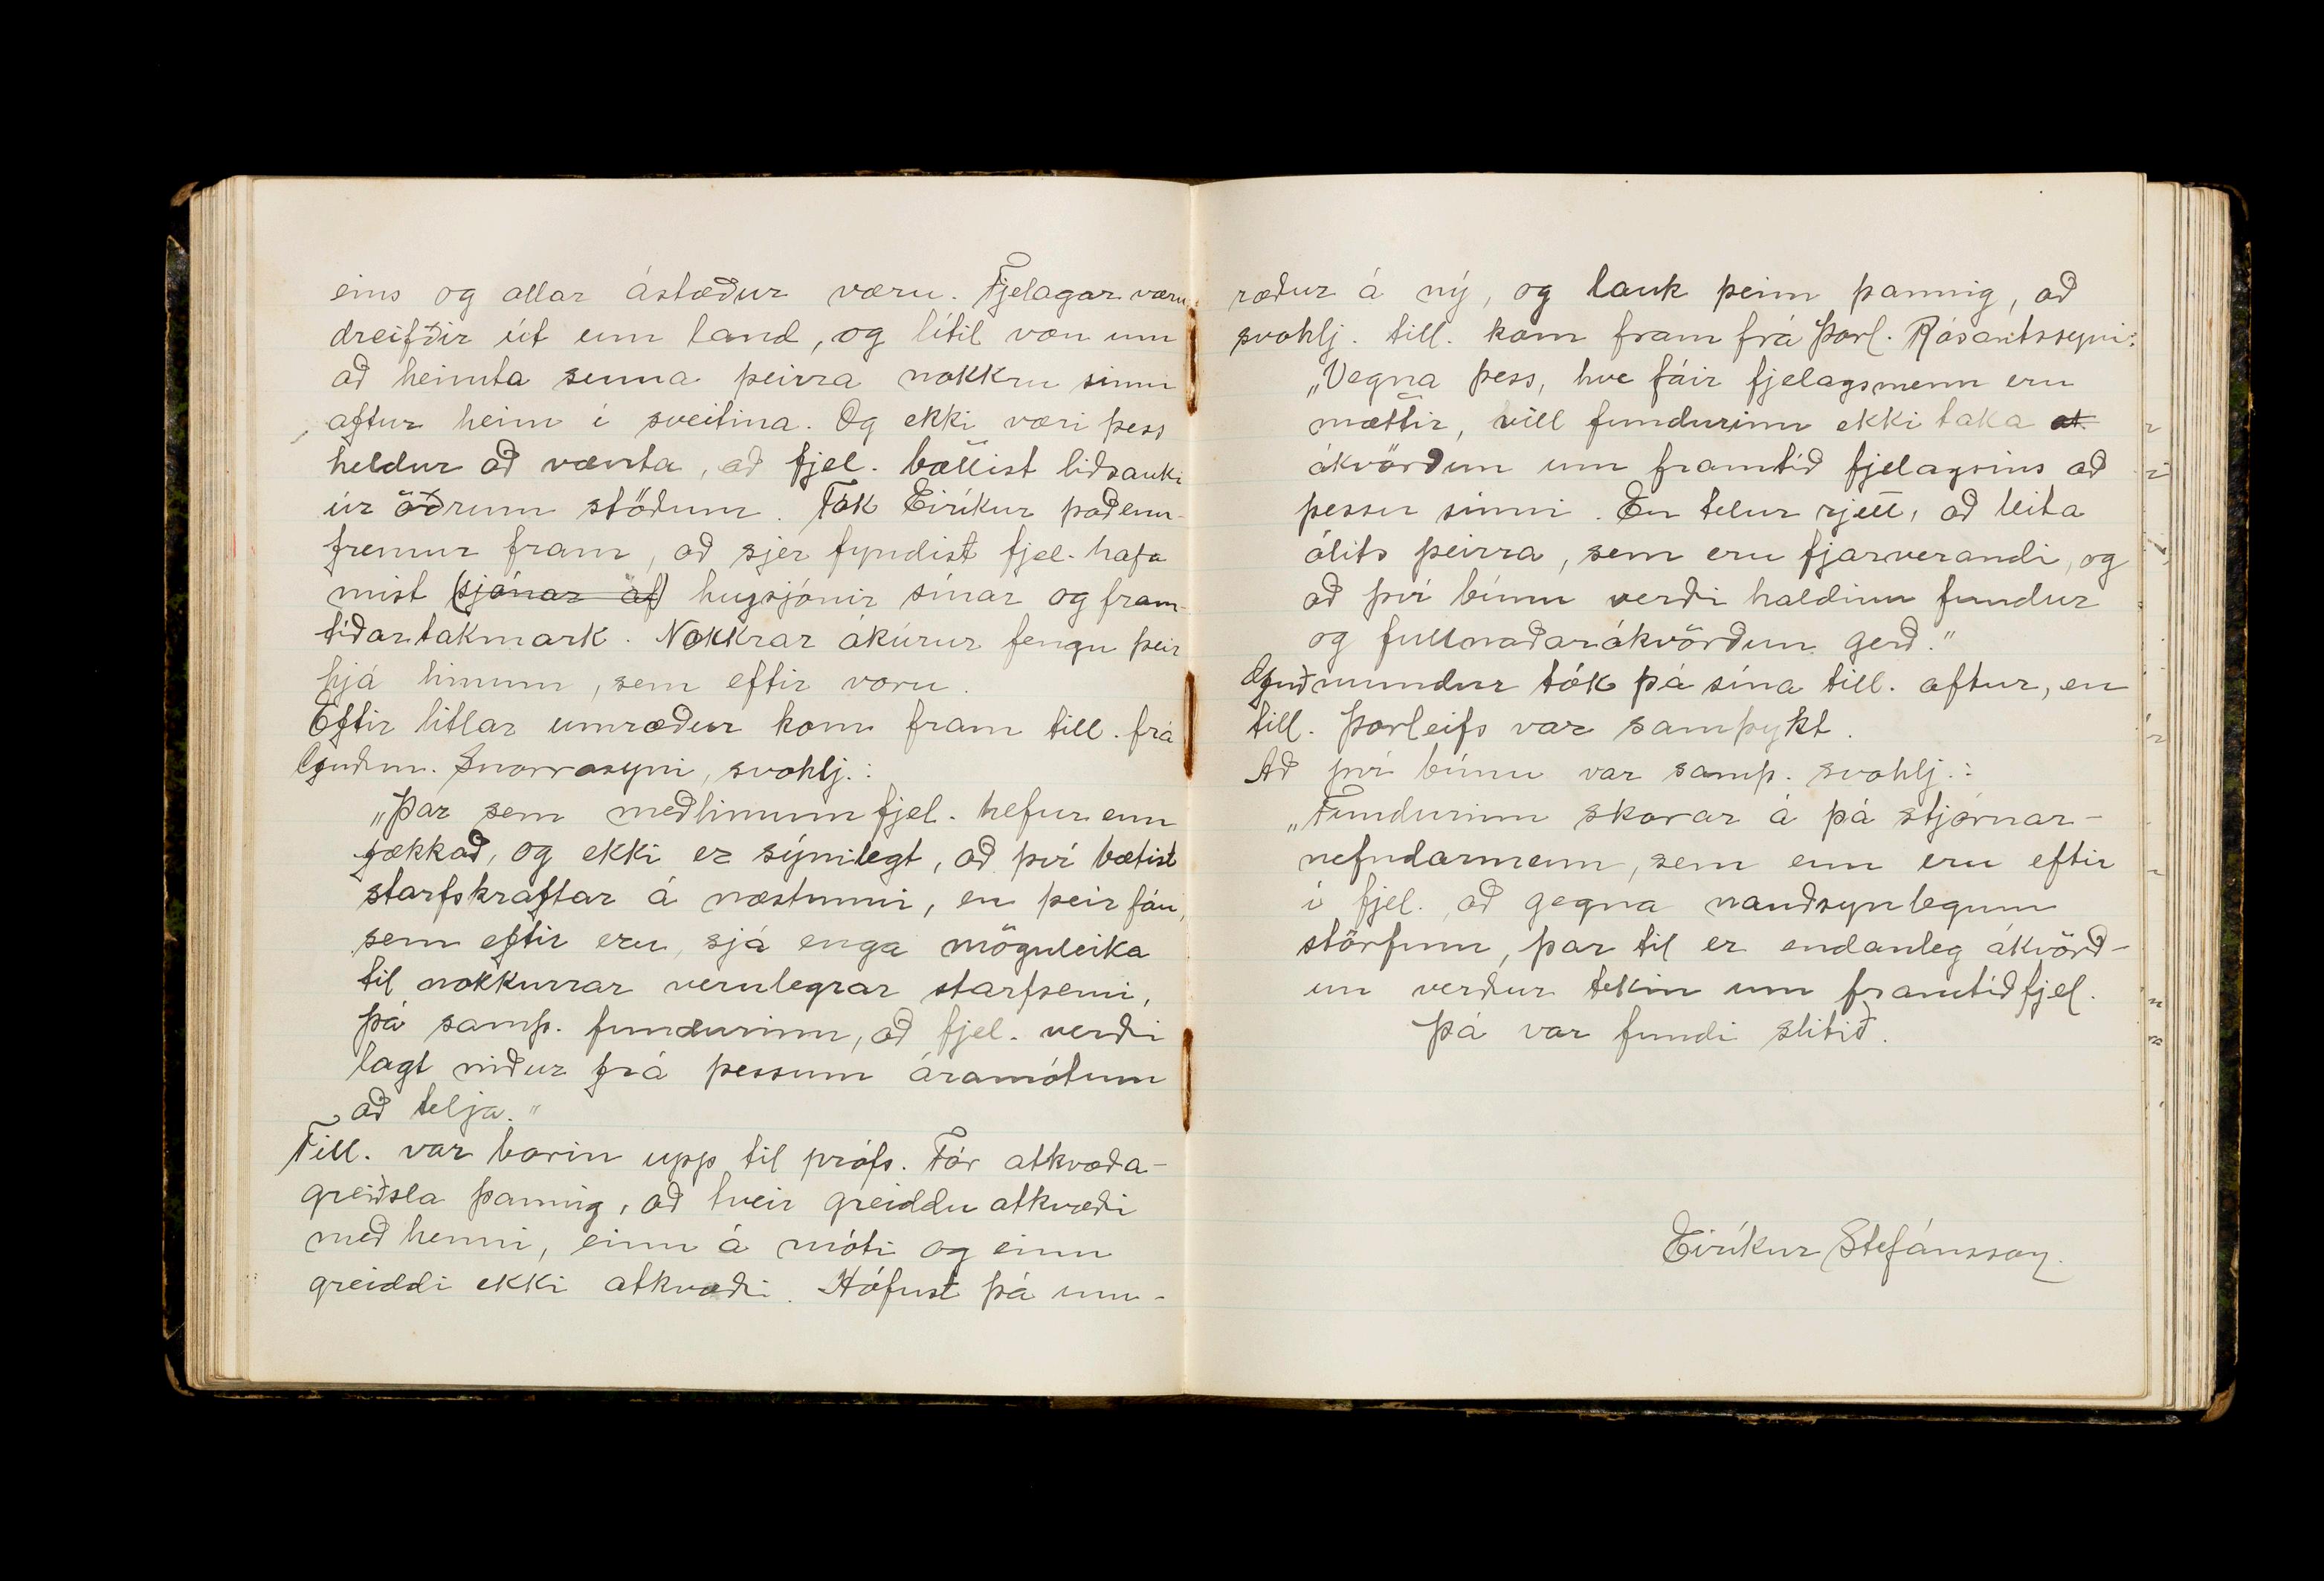 eins og allar ástæður væru. Fjelagar væru
dreifðir út um land, og lítil von um
að heimta suma þeirra nokkru sinni
aftur heim í sveitina. Og ekki væri þess
heldur að vænta, að fjel. bættist liðsauki
úr öðrum stöðum. Tók Eiríkur það enn-
fremur fram, að sjer fyndist fjel. hafa
mist (sjónar af) hugsjónir sínar og fram-
tíðartakmark. Nokkrar ákúrur fengu þeir
hjá hinum, sem eftir voru.
Eftir litlar umræður kom fram till. frá
Guðm. Snorrasyni, svohlj.:
„Þar sem meðlimum fjel. hefur enn
fækkað, og ekki er sýnilegt, að því bætist
starfskraftar á næstunni, en þeir fáu,
sem eftir eru, sjá enga möguleika
til nokkurrar verulegrar starfsemi,
þá samþ. fundurinn, að fjel. verði
lagt niður frá þessum áramótum
að telja."
Till. var borin upp til prófs. Fór atkvæða-
greiðsla þannig, að tveir greiddu atkvæði
með henni, einn á móti og einn
greiddi ekki atkvæði. Hófust þá um-
ræður á ný, og lauk þeim þannig, að
svohlj. till. kom fram frá Þorl. Rósantssyni:
„Vegna þess, hve fáir fjelagsmenn eru
mættir, vill fundurinn ekki taka at
ákvörðun um framtíð fjelagsins að
þessu sinni. En telur rjett, að leita
álits þeirra, sem eru fjarverandi, og
að því búnu verði haldinn fundur
og fullnaðarákvörðun gerð."
Guðmundur tók þá sína till. aftur, en
till. Þorleifs var samþykt.
Að því búnu var samþ. svohlj.:
„Fundurinn skorar á þá stjórnar-
nefndarmenn, sem enn eru eftir
í fjel. að gegna nauðsynlegum
störfum, þar til er endanleg ákvörð-
un verður tekin um framtíð fjel.
Þá var fundi slitið.
Eiríkur Stefánsson.